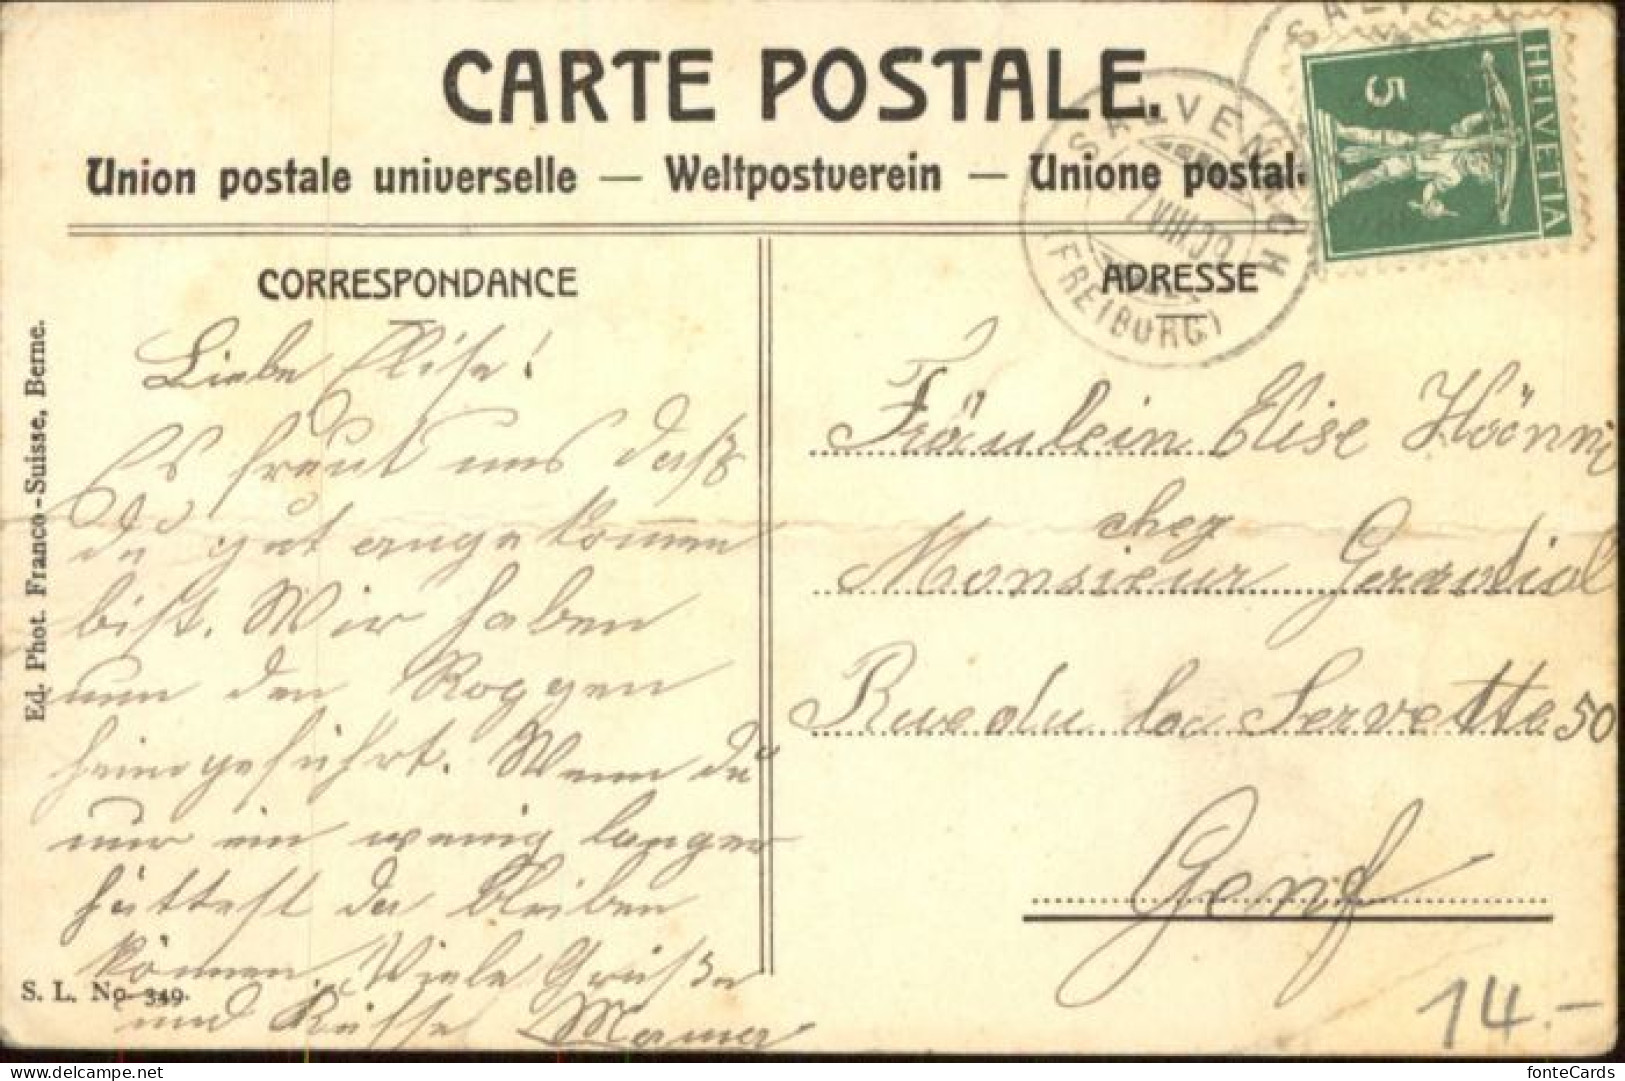 CARTE POSTALE.
Union postale universelle — Weltpostverein — Unione postal
HELVETIA
5
SALVENACH
7.VIII.09
(FREIBURG)
CORRESPONDANCE
Liebe Elise!
Es freut uns daß
du gut angekommen
bist. Wir haben
nun den Roggen
heimgeführt. Wenn du
nur ein wenig langer
hättest da bleiben
können. Viele Grüße
und Küsse
ADRESSE
Fräulein Elise Höönni
chez
Monsieur
Rue du la Servette 50
Genf
Ed. Phot. Franco-Suisse, Berne.
S. L. No. 349.
14.-
fonteCards